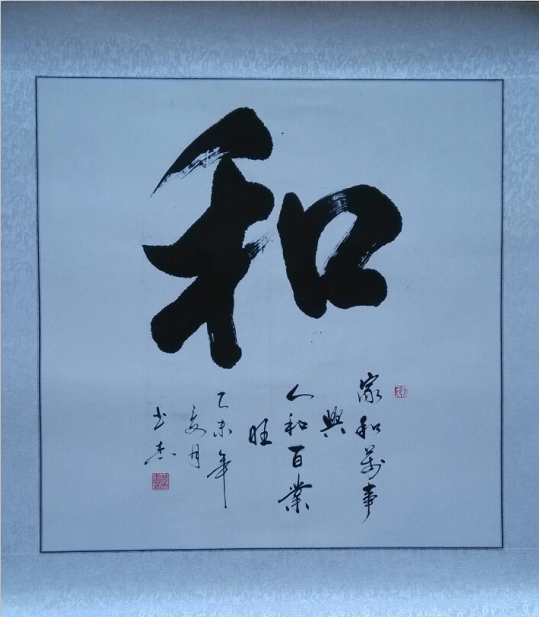 和
家和萬事
興
人和百業
旺
乙未年
月